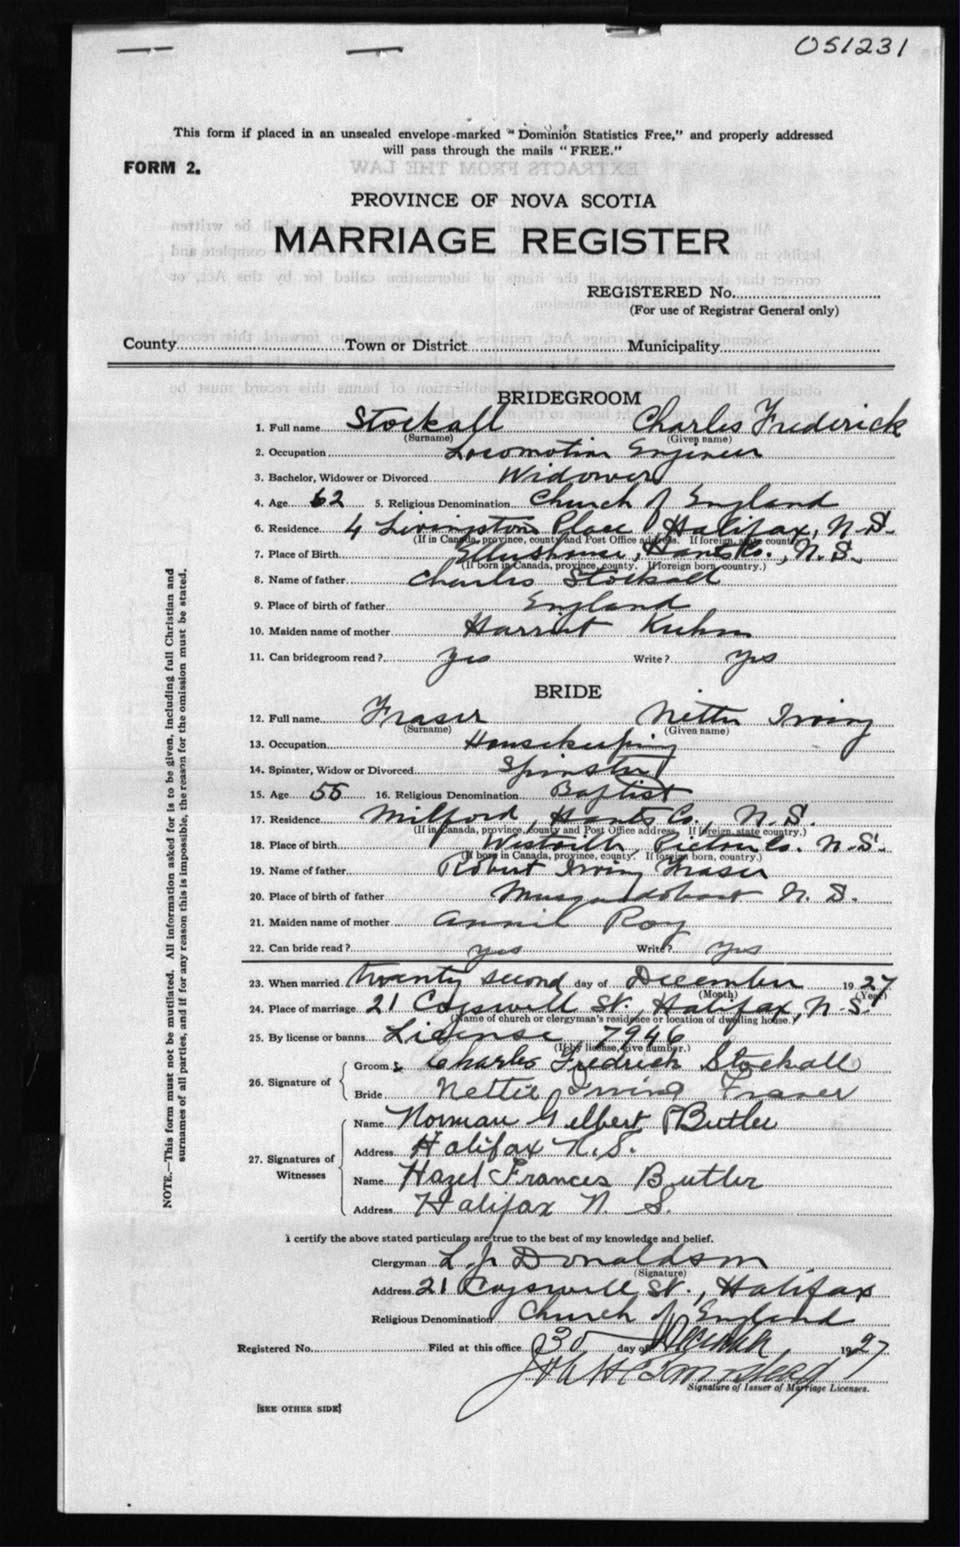 051231
This form if placed in an unsealed envelope marked "Dominion Statistics Free," and properly addressed
will pass through the mails "FREE."
FORM 2.
PROVINCE OF NOVA SCOTIA
MARRIAGE REGISTER
REGISTERED No.
(For use of Registrar General only)
County Town or District Municipality
BRIDEGROOM
1. Full name Stockall Charles Frederick
(Surname) (Given name)
2. Occupation Locomotive Engineer
3. Bachelor, Widower or Divorced Widower
4. Age 62 5. Religious Denomination Church of England
6. Residence 4 Livingston Place, Halifax, N.S.
(If in Canada, province, county and Post Office address. If foreign, state country.)
7. Place of Birth Ellershouse, Hants Co., N.S.
(If born in Canada, province, county. If foreign born, country.)
8. Name of father Charles Stockall
9. Place of birth of father England
10. Maiden name of mother Harriet Kuhn
11. Can bridegroom read? Yes Write? Yes
BRIDE
12. Full name Fraser Nettie Irving
(Surname) (Given name)
13. Occupation Housekeeping
14. Spinster, Widow or Divorced Spinster
15. Age 55 16. Religious Denomination Baptist
17. Residence Milford, Hants Co., N.S.
(If in Canada, province, county and Post Office address. If foreign, state country.)
18. Place of birth Westville, Pictou Co. N.S.
(If born in Canada, province, county. If foreign born, country.)
19. Name of father Robert Irving Fraser
20. Place of birth of father Musquodoboit N.S.
21. Maiden name of mother Annie Roy
22. Can bride read? yes Write? yes
23. When married twenty second day of December 1927
(Month) (Year)
24. Place of marriage 21 Cogswell St., Halifax, N.S.
(Name of church or clergyman's residence or location of dwelling house.)
25. By license or banns License, 7946
(If by license, give number.)
26. Signature of
Groom Charles Fredrick Stockall
Bride Nettie Irving Fraser
27. Signatures of Witnesses
Name Norman Gilbert Butler
Address Halifax N.S.
Name Hazel Frances Butler
Address Halifax N. S.
I certify the above stated particulars are true to the best of my knowledge and belief.
Clergyman L. J. Donaldson
(Signature)
Address 21 Cogswell St., Halifax
Religious Denomination Church of England
Registered No. Filed at this office 30 day of December 1927
Signature of Issuer of Marriage Licenses.
[SEE OTHER SIDE]
NOTE.—This form must not be mutilated. All information asked for is to be given, including full Christian and
surnames of all parties, and if for any reason this is impossible, the reason for the omission must be stated.